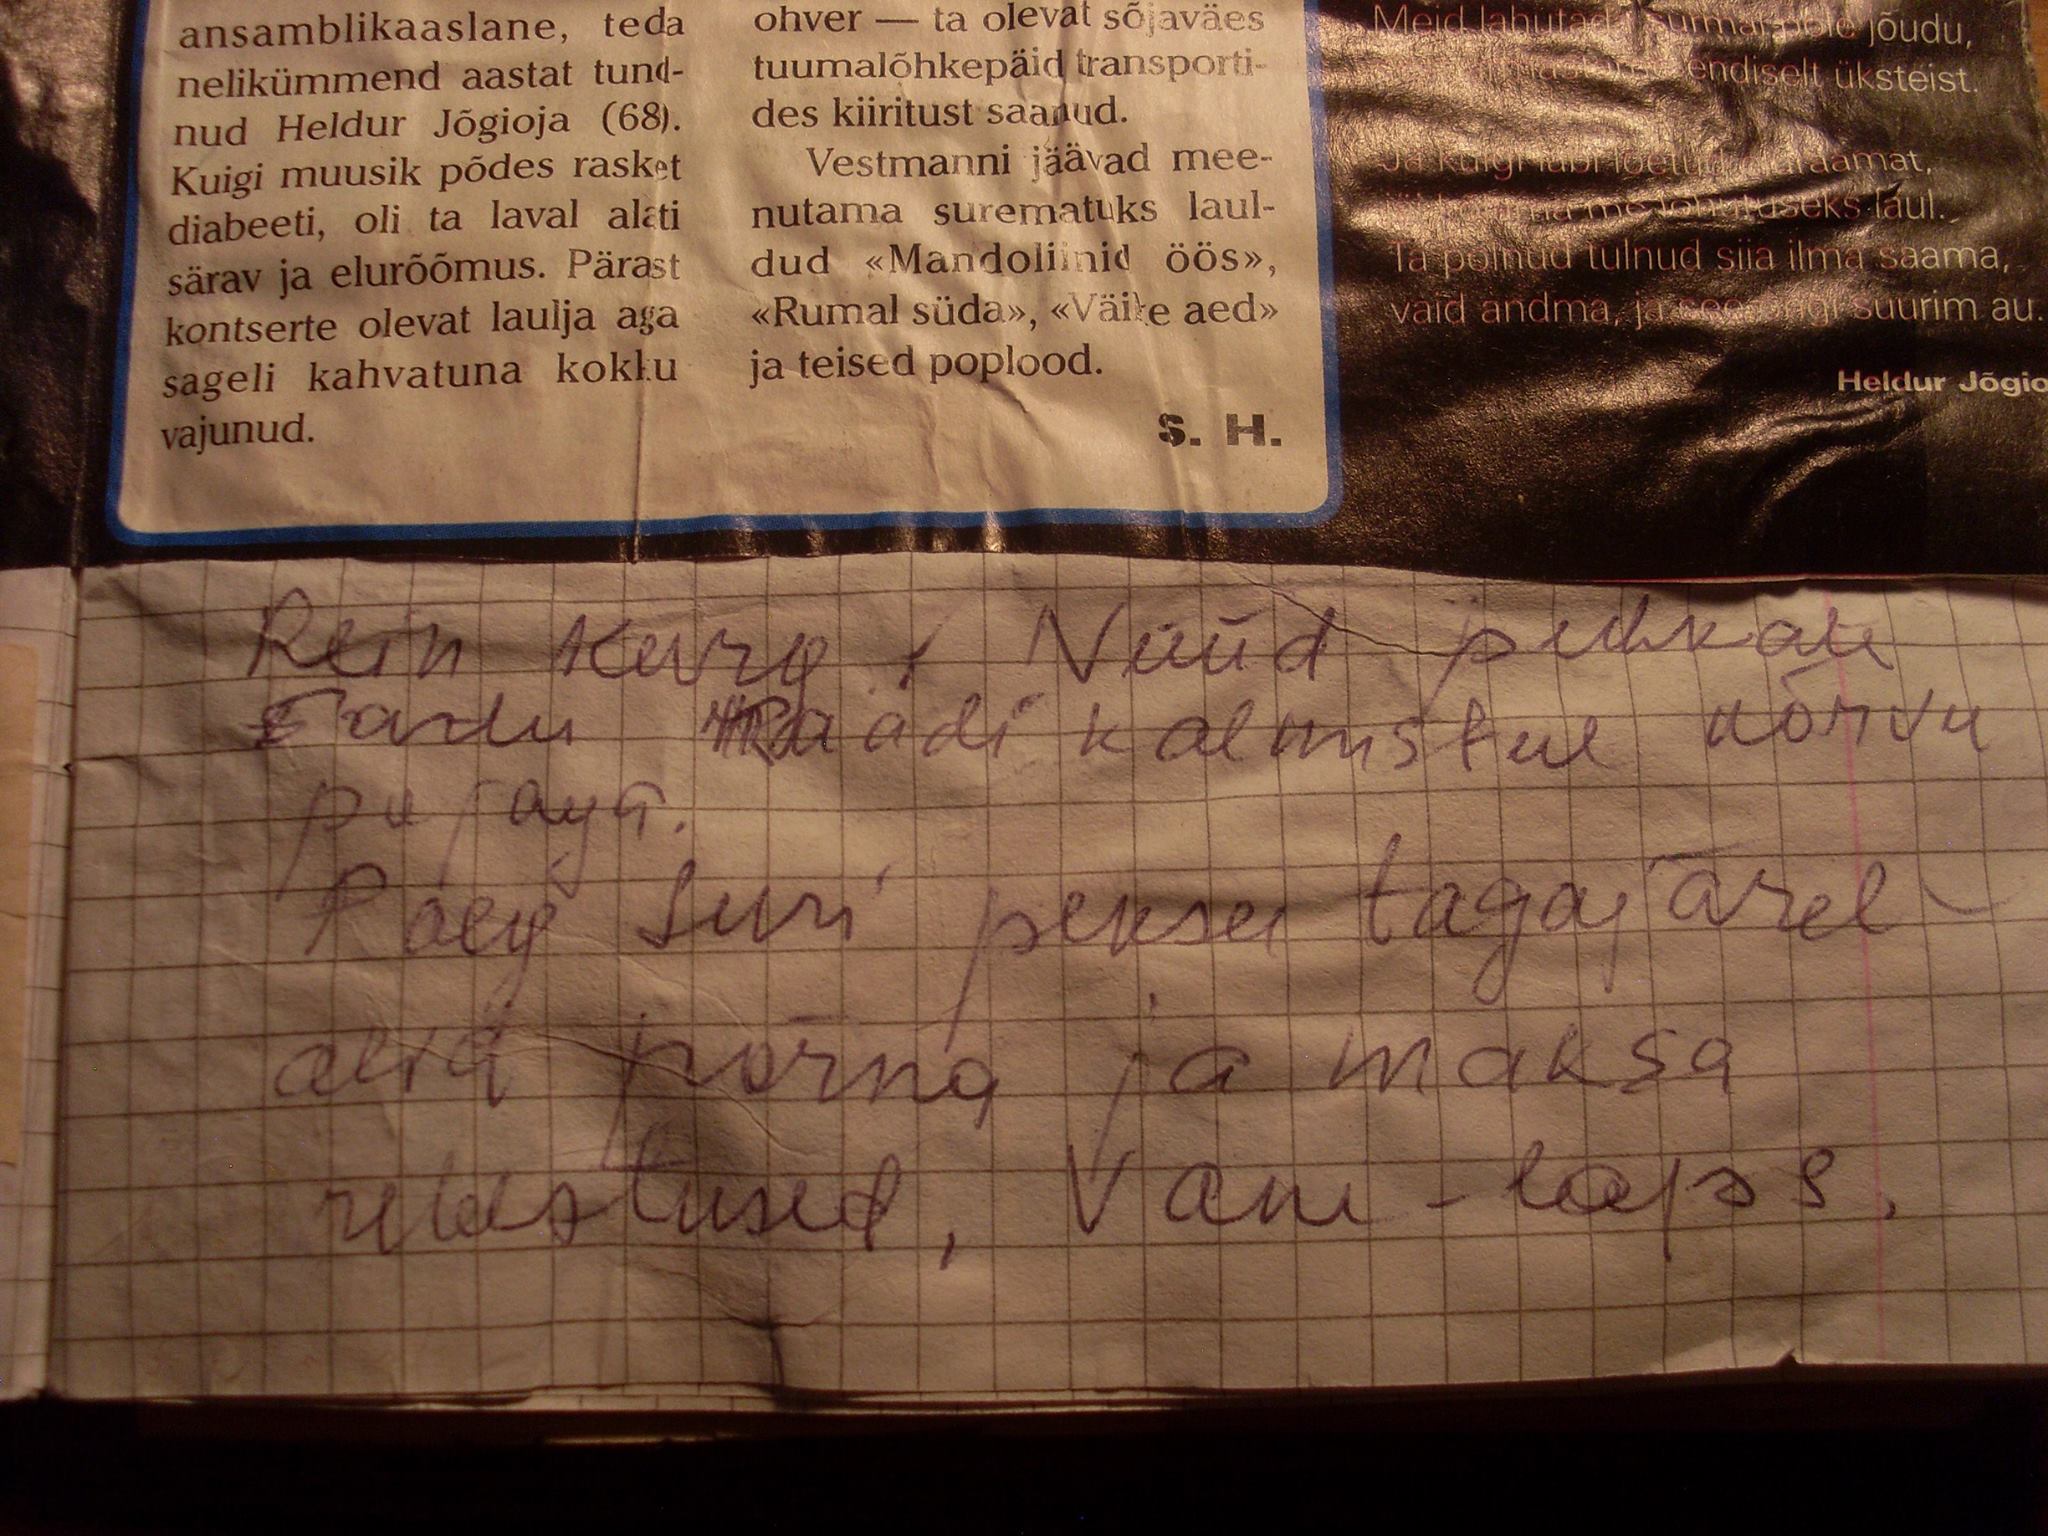 ansamblikaaslane, teda
nelikümmend aastat tund-
nud Heldur Jõgioja (68).
Kuigi muusik põdes rasket
diabeeti, oli ta laval alati
särav ja elurõõmus. Pärast
kontserte olevat laulja aga
sageli kahvatuna kokku
vajunud.
ohver — ta olevat sõjaväes
tuumalõhkepäid transporti-
des kiiritust saanud.
Vestmanni jäävad mee-
nutama surematuks laul-
dud «Mandoliinid öös»,
«Rumal süda», «Väike aed»
ja teised poplood.
S. H.
Meid lahutada surmal pole jõudu,
üksteist.
Ja kuigi läbi loetud
lohutuseks laul.
Ta polnud tulnud siia ilma saama,
vaid andma, ja see ongi suurim au.
Heldur Jõgio
Rein Kurg. Nüüd puhkate
Tartu Raadi kalmistul kõrvu
pojaga.
Poeg suri peksu tagajärel
olid põrna ja maksa
rebestused, Vane-laps.